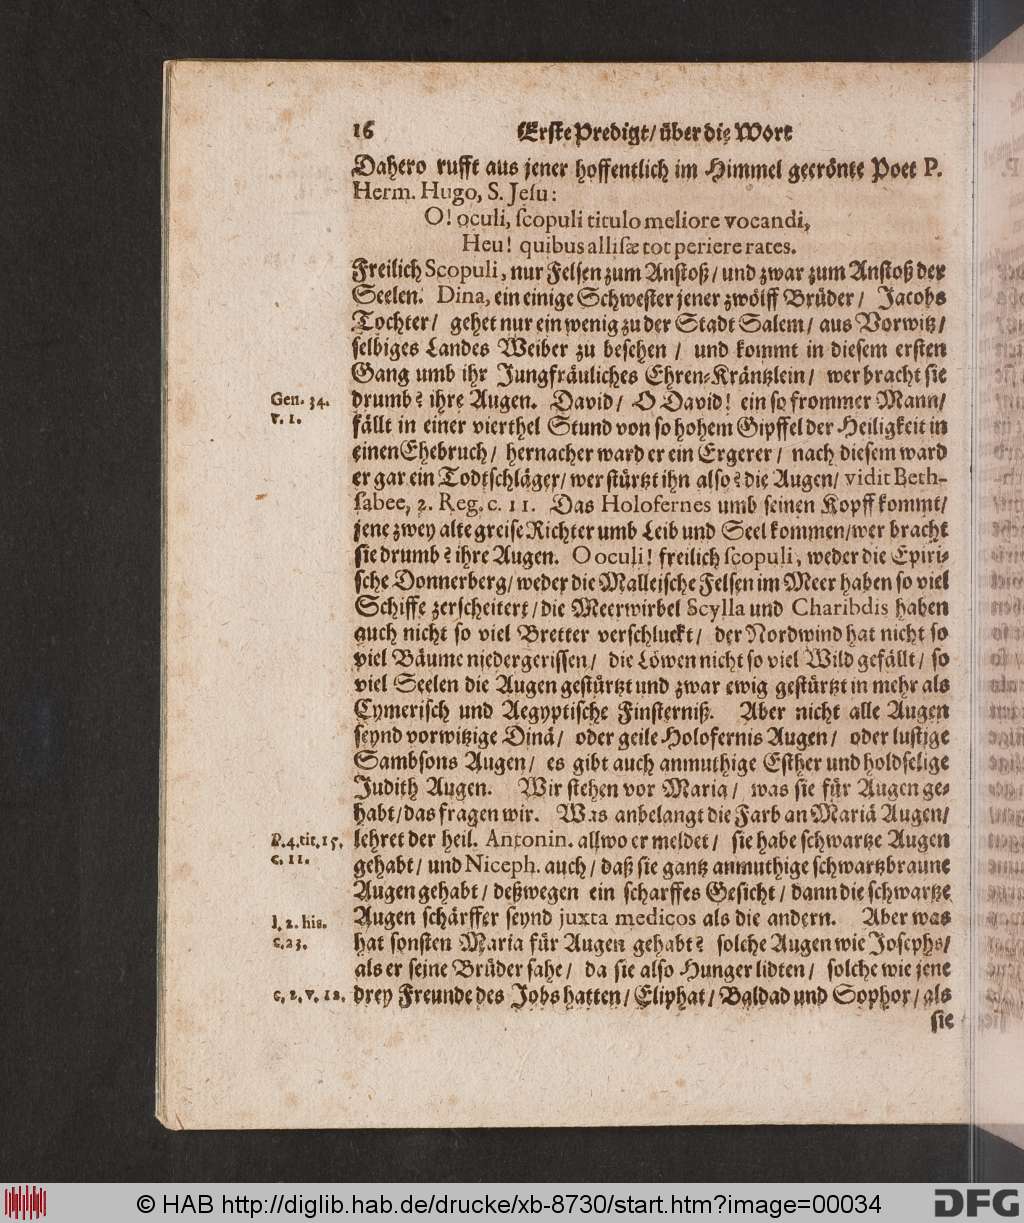 16 Erste Predigt/ über die Wort
Dahero rufft aus jener hoffentlich im Himmel gecrönte Poet P.
Herm. Hugo, S. Jesu:
O! oculi, scopuli titulo meliore vocandi,
Heu! quibus allisæ tot periere rates.
Freilich Scopuli, nur Felsen zum Anstoß/ und zwar zum Anstoß der
Seelen. Dina, ein einige Schwester jener zwölff Brüder/ Jacobs
Tochter/ gehet nur ein wenig zu der Stadt Salem/ aus Vorwitz/
selbiges Landes Weiber zu besehen/ und kommt in diesem ersten
Gang umb ihr Jungfräuliches Ehren-Kräntzlein/ wer bracht sie
Gen. 34. drumb? ihre Augen. David/ O David! ein so frommer Mann/
v. 1. fällt in einer vierthel Stund von so hohem Gipffel der Heiligkeit in
einen Ehebruch/ hernacher ward er ein Ergerer/ nach diesem ward
er gar ein Todtschläger/ wer stürtzt ihn also? die Augen/ vidit Beth-
sabee, 2. Reg. c. 11. Das Holofernes umb seinen Kopff kommt/
jene zwey alte greise Richter umb Leib und Seel kommen/wer bracht
sie drumb? ihre Augen. O oculi! freilich scopuli, weder die Epiri-
sche Donnerberg/ weder die Malleische Felsen im Meer haben so viel
Schiffe zerscheitert/ die Meerwirbel Scylla und Charibdis haben
auch nicht so viel Bretter verschluckt/ der Nordwind hat nicht so
viel Bäume niedergerissen/ die Löwen nicht so viel Wild gefällt/ so
viel Seelen die Augen gestürtzt und zwar ewig gestürtzt in mehr als
Cymerisch und Aegyptische Finsterniß. Aber nicht alle Augen
seynd vorwitzige Dinä/ oder geile Holofernis Augen/ oder lustige
Sambsons Augen/ es gibt auch anmuthige Esther und holdselige
Judith Augen. Wir stehen vor Maria/ was sie für Augen ge-
habt/ das fragen wir. Was anbelangt die Farb an Mariä Augen/
P. 4. tit. 15. lehret der heil. Antonin. allwo er meldet/ sie habe schwartze Augen
c. 11. gehabt/ und Niceph. auch/ daß sie gantz anmuthige schwartzbraune
Augen gehabt/ deßwegen ein scharffes Gesicht/ dann die schwartze
l. 2. his. Augen schärffer seynd juxta medicos als die andern. Aber was
c. 23. hat sonsten Maria für Augen gehabt? solche Augen wie Josephs/
als er seine Brüder sahe/ da sie also Hunger lidten/ solche wie jene
c. 2. v. 12. drey Freunde des Jobs hatten/ Eliphat/ Baldad und Sophor/ als
sie
© HAB http://diglib.hab.de/drucke/xb-8730/start.htm?image=00034 DFG